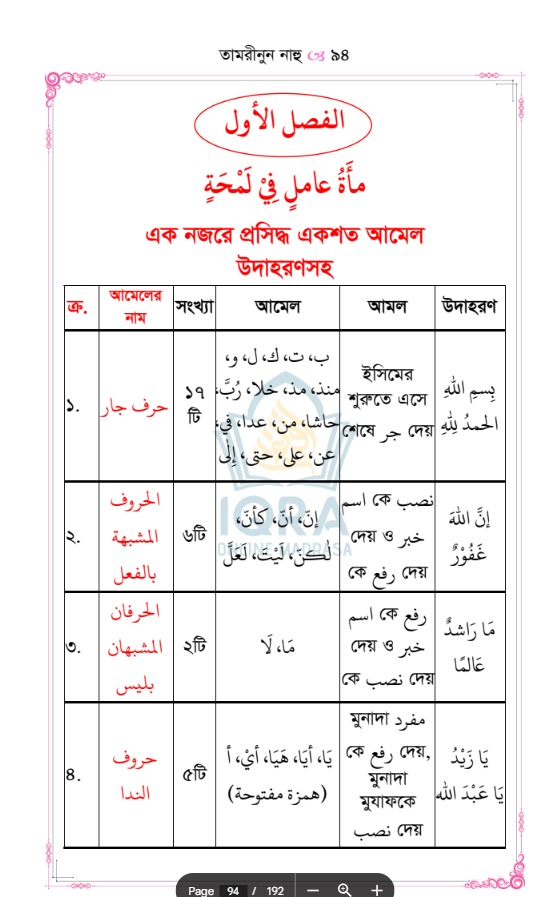 তামরীনুন নাহু ৯৪
الفصل الأول
مأَةُ عاملٍ فِيْ لَمْحَةٍ
এক নজরে প্রসিদ্ধ একশত আমেল
উদাহরণসহ
ক্র. আমেলের নাম সংখ্যা আমেল আমল উদাহরণ
১. حرف جار ১৭ টি
ب، ت، ك، ل، و،
منذ، مذ، خلا، رُبَّ،
حاشا، من، عدا، في،
عن، على، حتى، إلى
ইসিমের
শুরুতে এসে
শেষে جر দেয়
بِسمِ اللهِ
الحمدُ لِلّٰهِ
২. الحروف
المشبهة
بالفعل
৬টি
إنّ، أنّ، كأنّ،
لٰكنّ، لَيْتَ، لَعَلَّ
اسم কে نصب
দেয় ও خبر
কে رفع দেয়
إنَّ اللهَ
غَفُوْرٌ
৩. الحرفان
المشبهان
بليس
২টি
مَا، لَا
اسم কে رفع
দেয় ও خبر
কে نصب দেয়
مَا رَاشدٌ
عَالمًا
৪. حروف
الندا
৫টি
يَا، أيَا، هَيَا، أيْ، أ
(همزة مفتوحة)
মুনাদা مفرد
কে رفع দেয়,
মুনাদা
মুযাফকে
نصب দেয়
يَا زَيْدُ
يَا عَبْدَ الله
IQRA
ONLINE MADRASA
Page 94 / 192